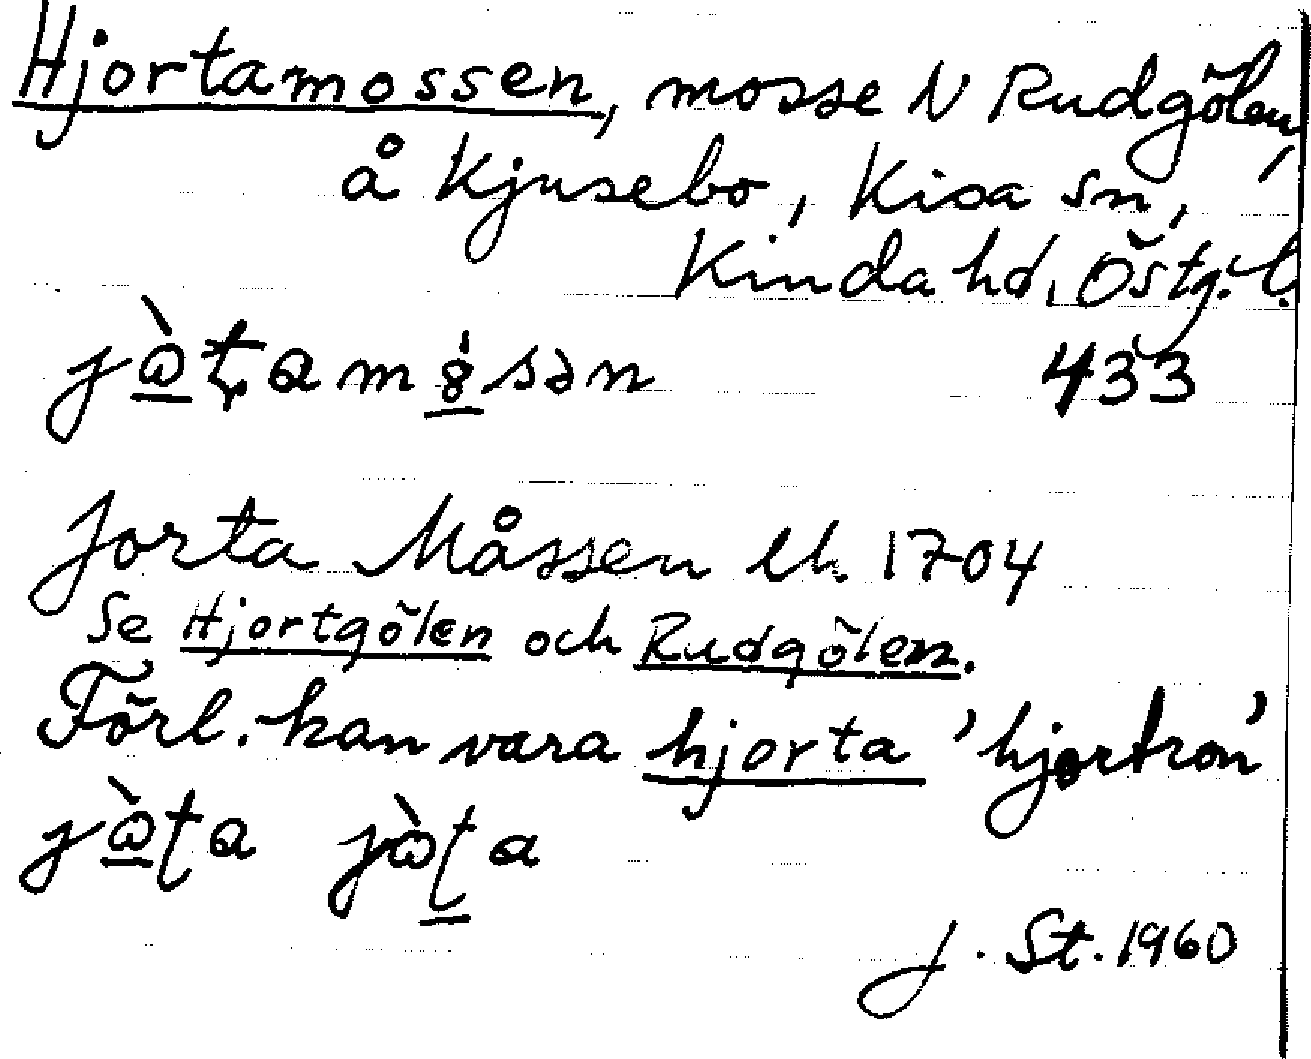 Hjortamossen, mosse N Rudgölen,
å Kjusebo, Kisa sn,
Kinda hd, Östg. l.
jòʈamósən 433
Jorta Måssen lh. 1704
Se Hjortgölen och Rudgölen.
Förl. kan vara hjorta 'hjortron'
jòʈa jòʈa
J. St. 1960